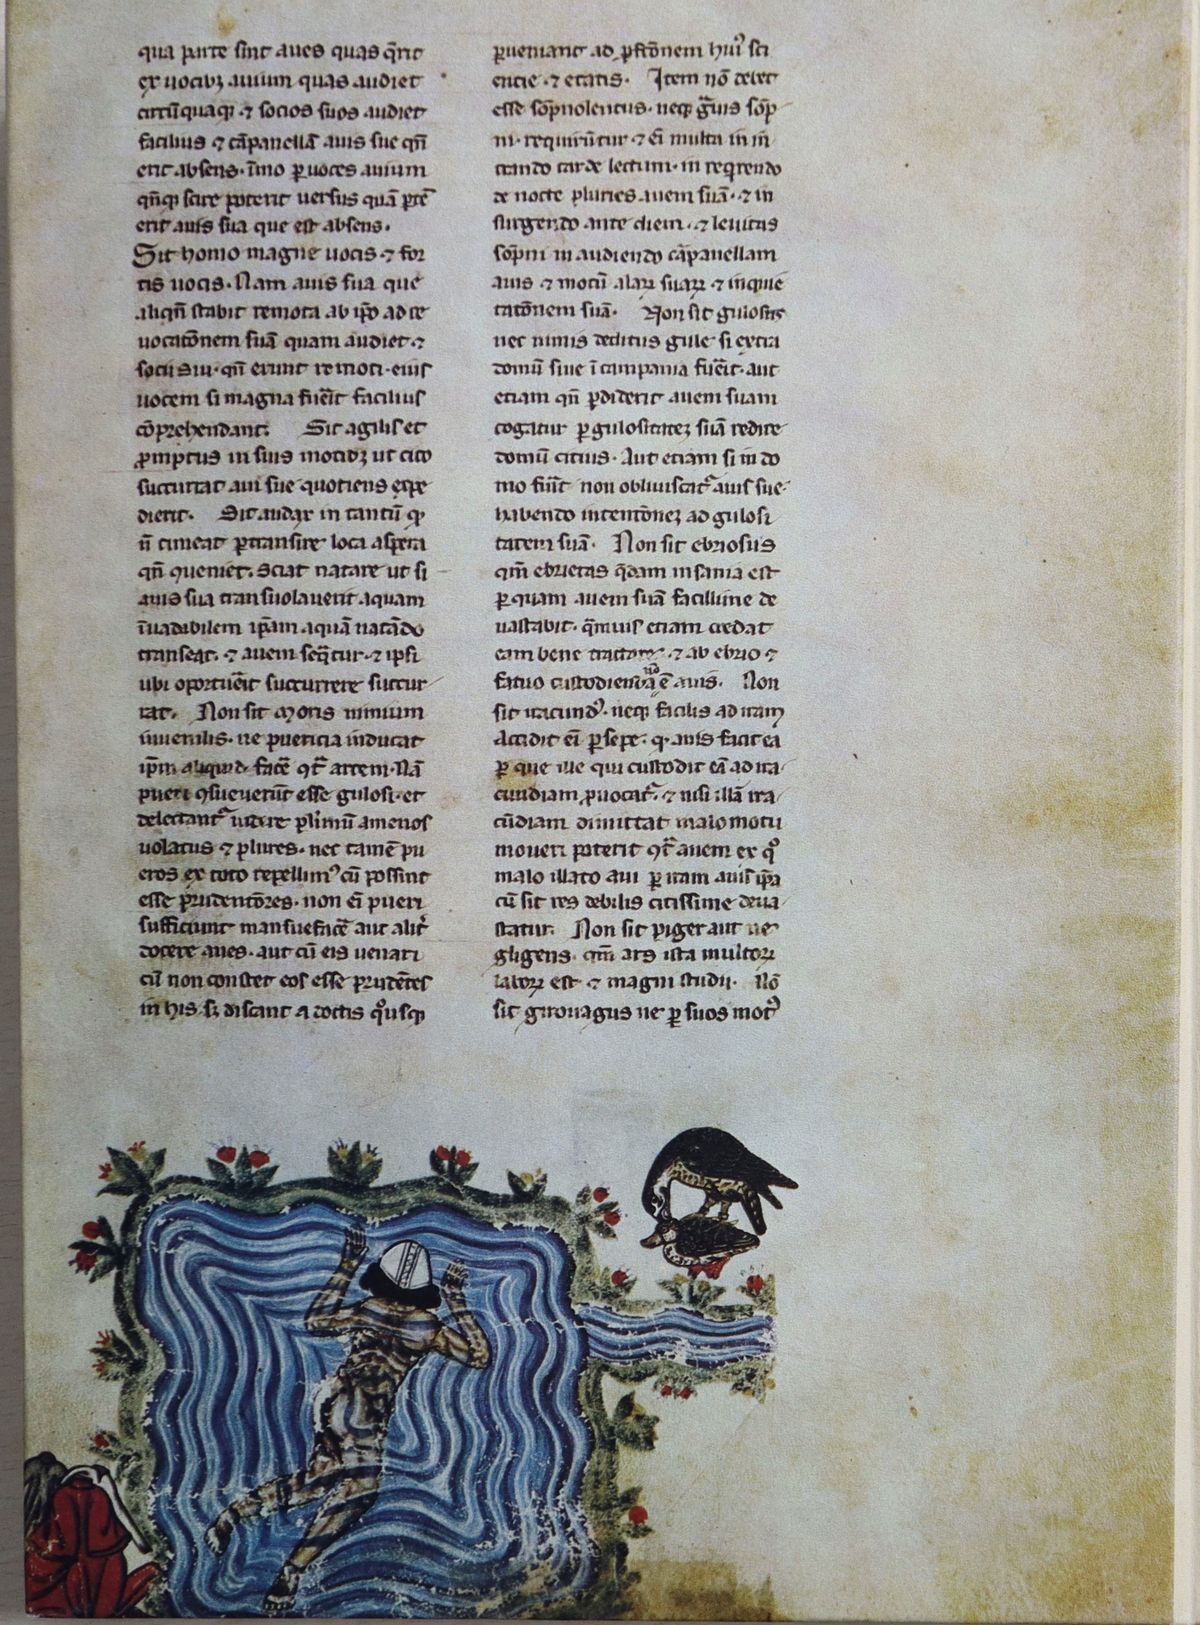 qua parte sint aues quas q̄rit
ex uocibꝫ auium quas audiet
circūquaqꝫ ⁊ socios suos audiet
facilius ⁊ cāpanellā auis sue qn̄
erit absens. īmo ꝑ uoces auium
qn̄qꝫ scire poterit uersus quā ꝑtē
erit auis sua que est absens.
Sit homo magne uocis ⁊ for
tis uocis. Nam auis sua que
aliqn̄ stabit remota ab ip̄o ad re
uocatōnem suā quam audiet ⁊
socii sui. qn̄ erunt remoti. eius
uocem si magna fuerit facilius
cōprehendant. Sit agilis et
promptus in suis motibꝫ ut cito
succurrat aui sue quotiens expe
dierit. Sit audax in tantū ꝙ
n̄ timeat ꝑtransire loca aspera
qn̄ . Sciat natare ut si
auis sua transuolauerit aquam
īuadibilem ip̄am aquā natādo
transeat. ⁊ auem seq̄tur. ⁊ ipsi
ubi oportuerit succurrere succur
rat. Non sit moris nimium
iuuenilis. ne puericia inducat
ip̄m aliquid facere ꝯtͣ artem. Nā
pueri ꝯsueuerūt esse gulosi. et
delectantᷣ uidere plurimū amenos
uolatus ⁊ plures. nec tamē pu
eros ex toto repellimꝰ cū possint
esse prudentōres. non eī pueri
sufficiunt mansuefacere aut alit̄
docere aues. aut cū eis uenari
cū non constet eos esse prudētes
in his. sꝫ discant a doctis qousqꝫ
ꝑueniant ad ꝑfctōnem huiꝰ sci
encie. ⁊ etatis. Item nō debet
esse sōpnolentus. neqꝫ grauis sōp
ni. requirūtur ⁊ eī multa in in
trando tarde lectum. in reqrendo
de nocte pluries auem suā. ⁊ in
surgendo ante diem. ⁊ leuitas
sōpni in audiendo cāpanellam
auis ⁊ motū alaꝝ suaꝝ ⁊ inquie
tatōnem suā. Non sit gulosus
nec nimis deditus gule si extra
domū siue ī campania fuerit. aut
etiam qn̄ ꝑdiderit auem suam
cogatur ꝑ gulositatē suā redire
domū citius. Aut etiam si in do
mo fuerit non obliuiscatᷣ auis sue.
habendo intentōnē ad gulosi
tatem suā. Non sit ebriosus
qm̄ ebrietas q̄dam insania est
ꝑ quam auem suā facillime de
uastabit. q̄muis etiam credat
eam bene tractare. ⁊ ab ebrio ⁊
fatuo nō custodienda ē auis. Non
sit iracundꝰ. neqꝫ facilis ad iram
Accidit eī ꝑsepe. ꝙ auis facit ea
ꝑ que ille qui custodit eā ad ira
cundiam ꝓuocatᷣ. ⁊ nisi illā ira
cūdiam dimittat malo motu
moueri poterit ꝯtͣ auem ex qͦ
malo illato aui ꝑ iram auis ip̄a
cū sit res debilis citissime deua
statur. Non sit piger aut ne
gligens. qm̄ ars ista multoꝝ
laboꝝ est ⁊ magni studii. Nō
sit girouagus ne ꝑ suos motꝰ